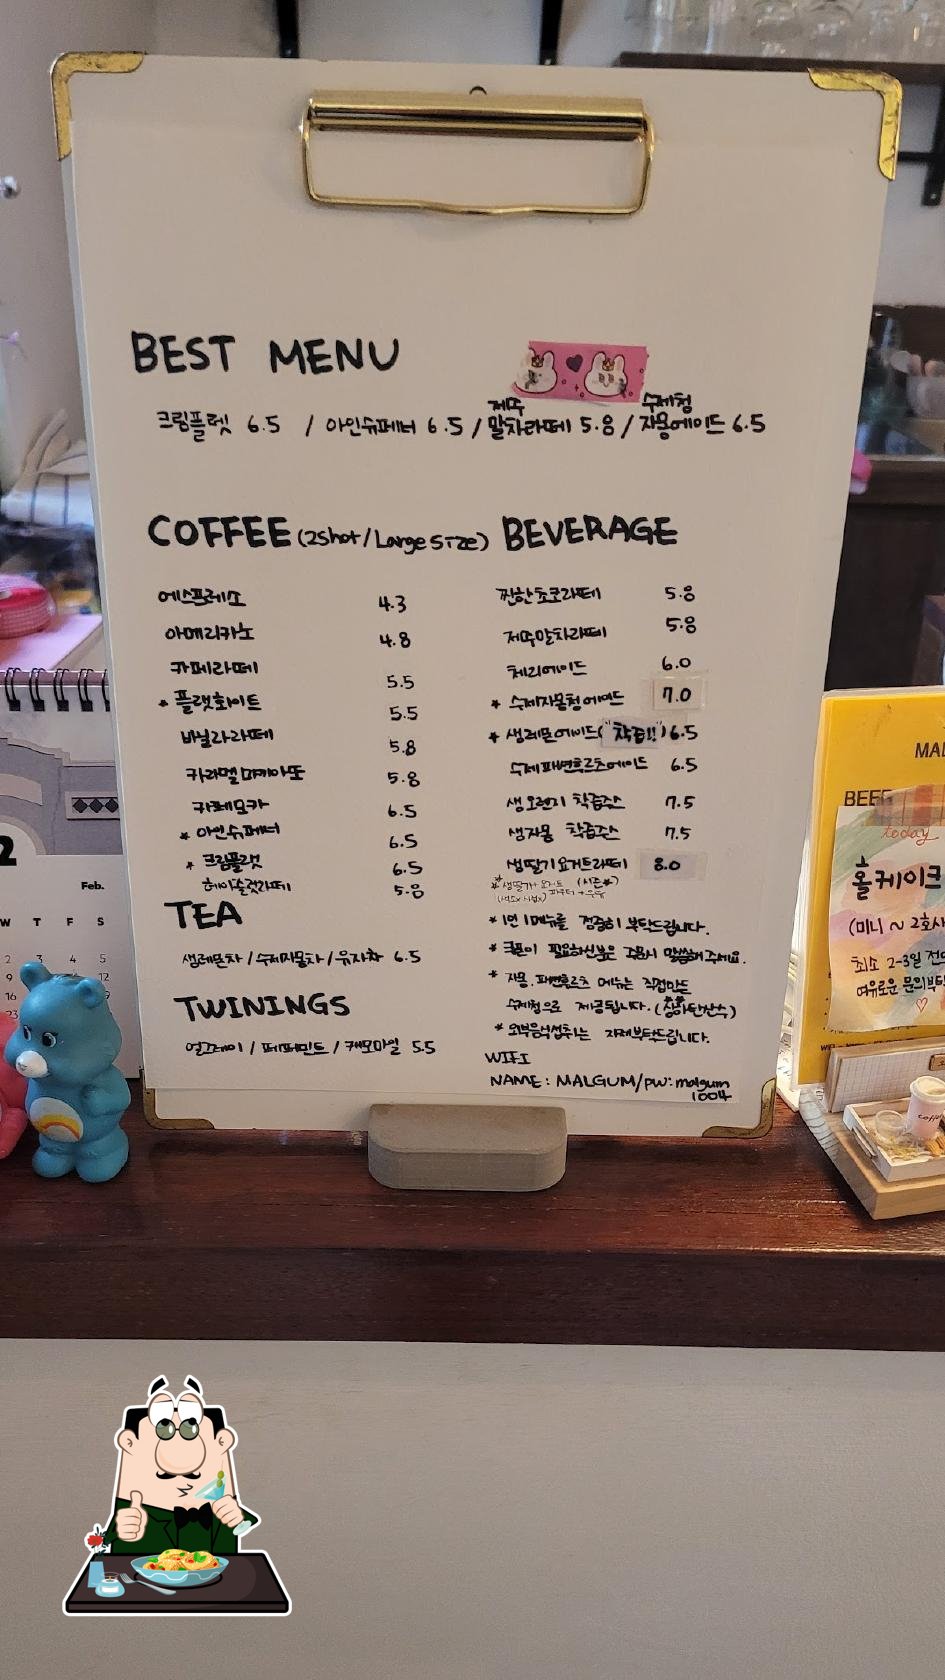 BEST MENU
제주 수제청
크림플렛 6.5 / 아인슈페너 6.5 / 말차라떼 5.8 / 자몽에이드 6.5
COFFEE (2shot / Large size)
에스프레소 4.3
아메리카노 4.8
카페라떼 5.5
* 플랫화이트 5.5
바닐라라떼 5.8
카라멜마끼아또 5.8
카페모카 6.5
* 아인슈페너 6.5
* 크림플랫 6.5
헤이즐럿라떼 5.8
TEA
생레몬차 / 수제자몽차 / 유자차 6.5
TWININGS
얼그레이 / 페퍼민트 / 캐모마일 5.5
BEVERAGE
찐한초코라떼 5.8
제주말차라떼 5.8
체리에이드 6.0
* 수제자몽청에이드 7.0
* 생레몬에이드("착즙!!") 6.5
수제패션후르츠에이드 6.5
생오렌지 착즙주스 7.5
생자몽 착즙주스 7.5
생딸기요거트라떼 8.0
* 1인 1메뉴를 정중히 부탁드립니다.
* 쿠폰이 필요하신분은 주문시 말씀해주세요.
* 자몽, 패션후르츠 메뉴는 직접만든
수제청으로 제공됩니다. (탄산수)
* 외부음식섭취는 자제부탁드립니다.
WIFI
NAME : MALGUM / pw: malgum
1004
2
Feb.
W T F S
2 3 4 5
9 12
16
23
MAL
BEER
today
홀케이크
(미니 ~ 2호사
최소 2-3일 전
여유로운 문의부탁
coffee